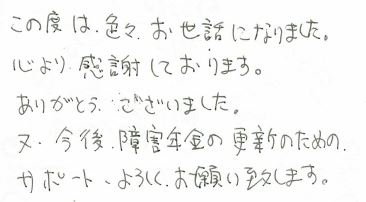 この度は、色々、お世話になりました。
心より感謝しております。
ありがとうございました。
又、今後、障害年金の更新のための、
サポート、よろしく、お願い致します。